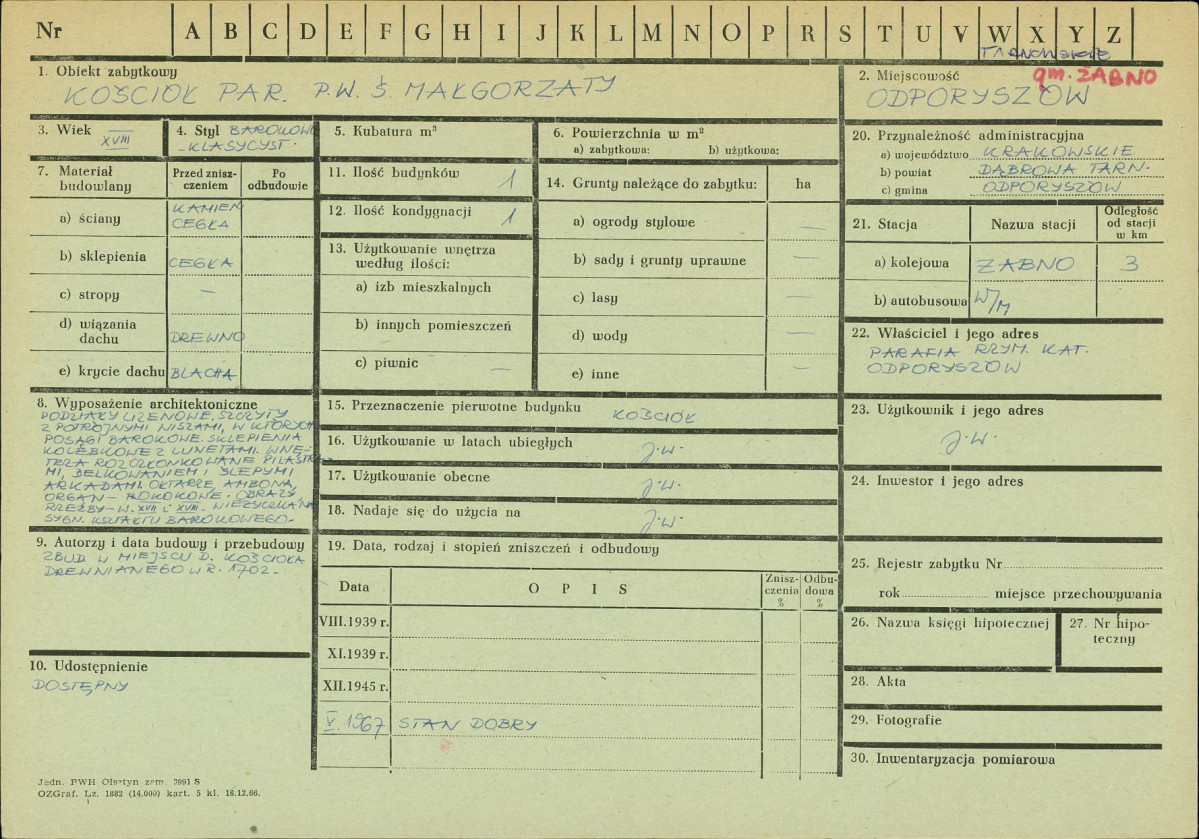 Nr A B C D E F G H I J K L M N O P R S T U V W X Y Z
TARNOWSKIE
1. Obiekt zabytkowy
KOŚCIÓŁ PAR. P.W. Ś. MAŁGORZATY
2. Miejscowość
gm. ŻABNO
ODPORYSZÓW
3. Wiek
XVIII
4. Styl BAROKOWO
-KLASYCYST.
5. Kubatura m³
6. Powierzchnia w m²
a) zabytkowa: b) użytkowa:
20. Przynależność administracyjna
a) województwo KRAKOWSKIE
b) powiat DĄBROWA TARN.
c) gmina ODPORYSZÓW
7. Materiał
budowlany
Przed znisz-
czeniem
Po
odbudowie
a) ściany KAMIEŃ
CEGŁA
b) sklepienia CEGŁA
c) stropy —
d) wiązania
dachu DREWNO
e) krycie dachu BLACHA
11. Ilość budynków 1
12. Ilość kondygnacji 1
13. Użytkowanie wnętrza
według ilości:
a) izb mieszkalnych
b) innych pomieszczeń
c) piwnic —
14. Grunty należące do zabytku: ha
a) ogrody stylowe —
b) sady i grunty uprawne —
c) lasy —
d) wody —
e) inne —
21. Stacja Nazwa stacji
Odległość
od stacji
w km
a) kolejowa ŻABNO 3
b) autobusowa W/M
22. Właściciel i jego adres
PARAFIA RZYM. KAT.
ODPORYSZÓW
8. Wyposażenie architektoniczne
PODZIAŁY LIZENOWE, SZCZYTY
Z POTRÓJNYMI NISZAMI, W KTÓRYCH
POSĄGI BAROKOWE. SKLEPIENIA
KOLEBKOWE Z LUNETAMI. WNĘ-
TRZA ROZCZŁONKOWANE PILASTRA-
MI, BELKOWANIEM I ŚLEPYMI
ARKADAMI. OŁTARZE, AMBONA,
ORGAN – ROKOKOWE. OBRAZY,
RZEŹBY – W. XVII i XVIII. WIEŻYCZKA NA
SYGN. KSZTAŁTU BAROKOWEGO.
15. Przeznaczenie pierwotne budynku KOŚCIÓŁ
16. Użytkowanie w latach ubiegłych J.W.
17. Użytkowanie obecne J.W.
18. Nadaje się do użycia na J.W.
23. Użytkownik i jego adres
J.W.
24. Inwestor i jego adres
9. Autorzy i data budowy i przebudowy
ZBUD. W MIEJSCU D. KOŚCIOŁA
DREWNIANEGO W R. 1702.
19. Data, rodzaj i stopień zniszczeń i odbudowy
Data O P I S
Znisz-
czenia
%
Odbu-
dowa
%
VIII.1939 r.
XI.1939 r.
XII.1945 r.
V. 1967 STAN DOBRY
25. Rejestr zabytku Nr
rok miejsce przechowywania
26. Nazwa księgi hipotecznej
27. Nr hipo-
teczny
10. Udostępnienie
DOSTĘPNY
28. Akta
29. Fotografie
30. Inwentaryzacja pomiarowa
Jedn. PWH Olsztyn zam. 3991 S
OZGraf. Lz. 1882 (14.000) kart. 5 kl. 16.12.66.